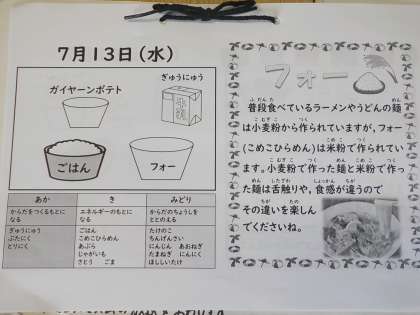 7月13日(水)
ガイヤーンポテト
ぎゅうにゅう
ごはん
フォー
あか
き
みどり
からだをつくるもとに
なる
エネルギーのもとに
なる
からだのちょうしを
ととのえる
ぎゅうにゅう
ぶたにく
とりにく
ごはん
こめこひらめん
あぶら
じゃがいも
さとう ごま
たけのこ
ちんげんさい
にんじん あおねぎ
たまねぎ にんにく
ほししいたけ
フォー
普段食べているラーメンやうどんの麺
は小麦粉から作られていますが、フォー
(こめこひらめん)は米粉で作られてい
ます。小麦粉で作った麺と米粉で作っ
た麺は舌触りや、食感が違うので
その違いを楽しん
でくださいね。